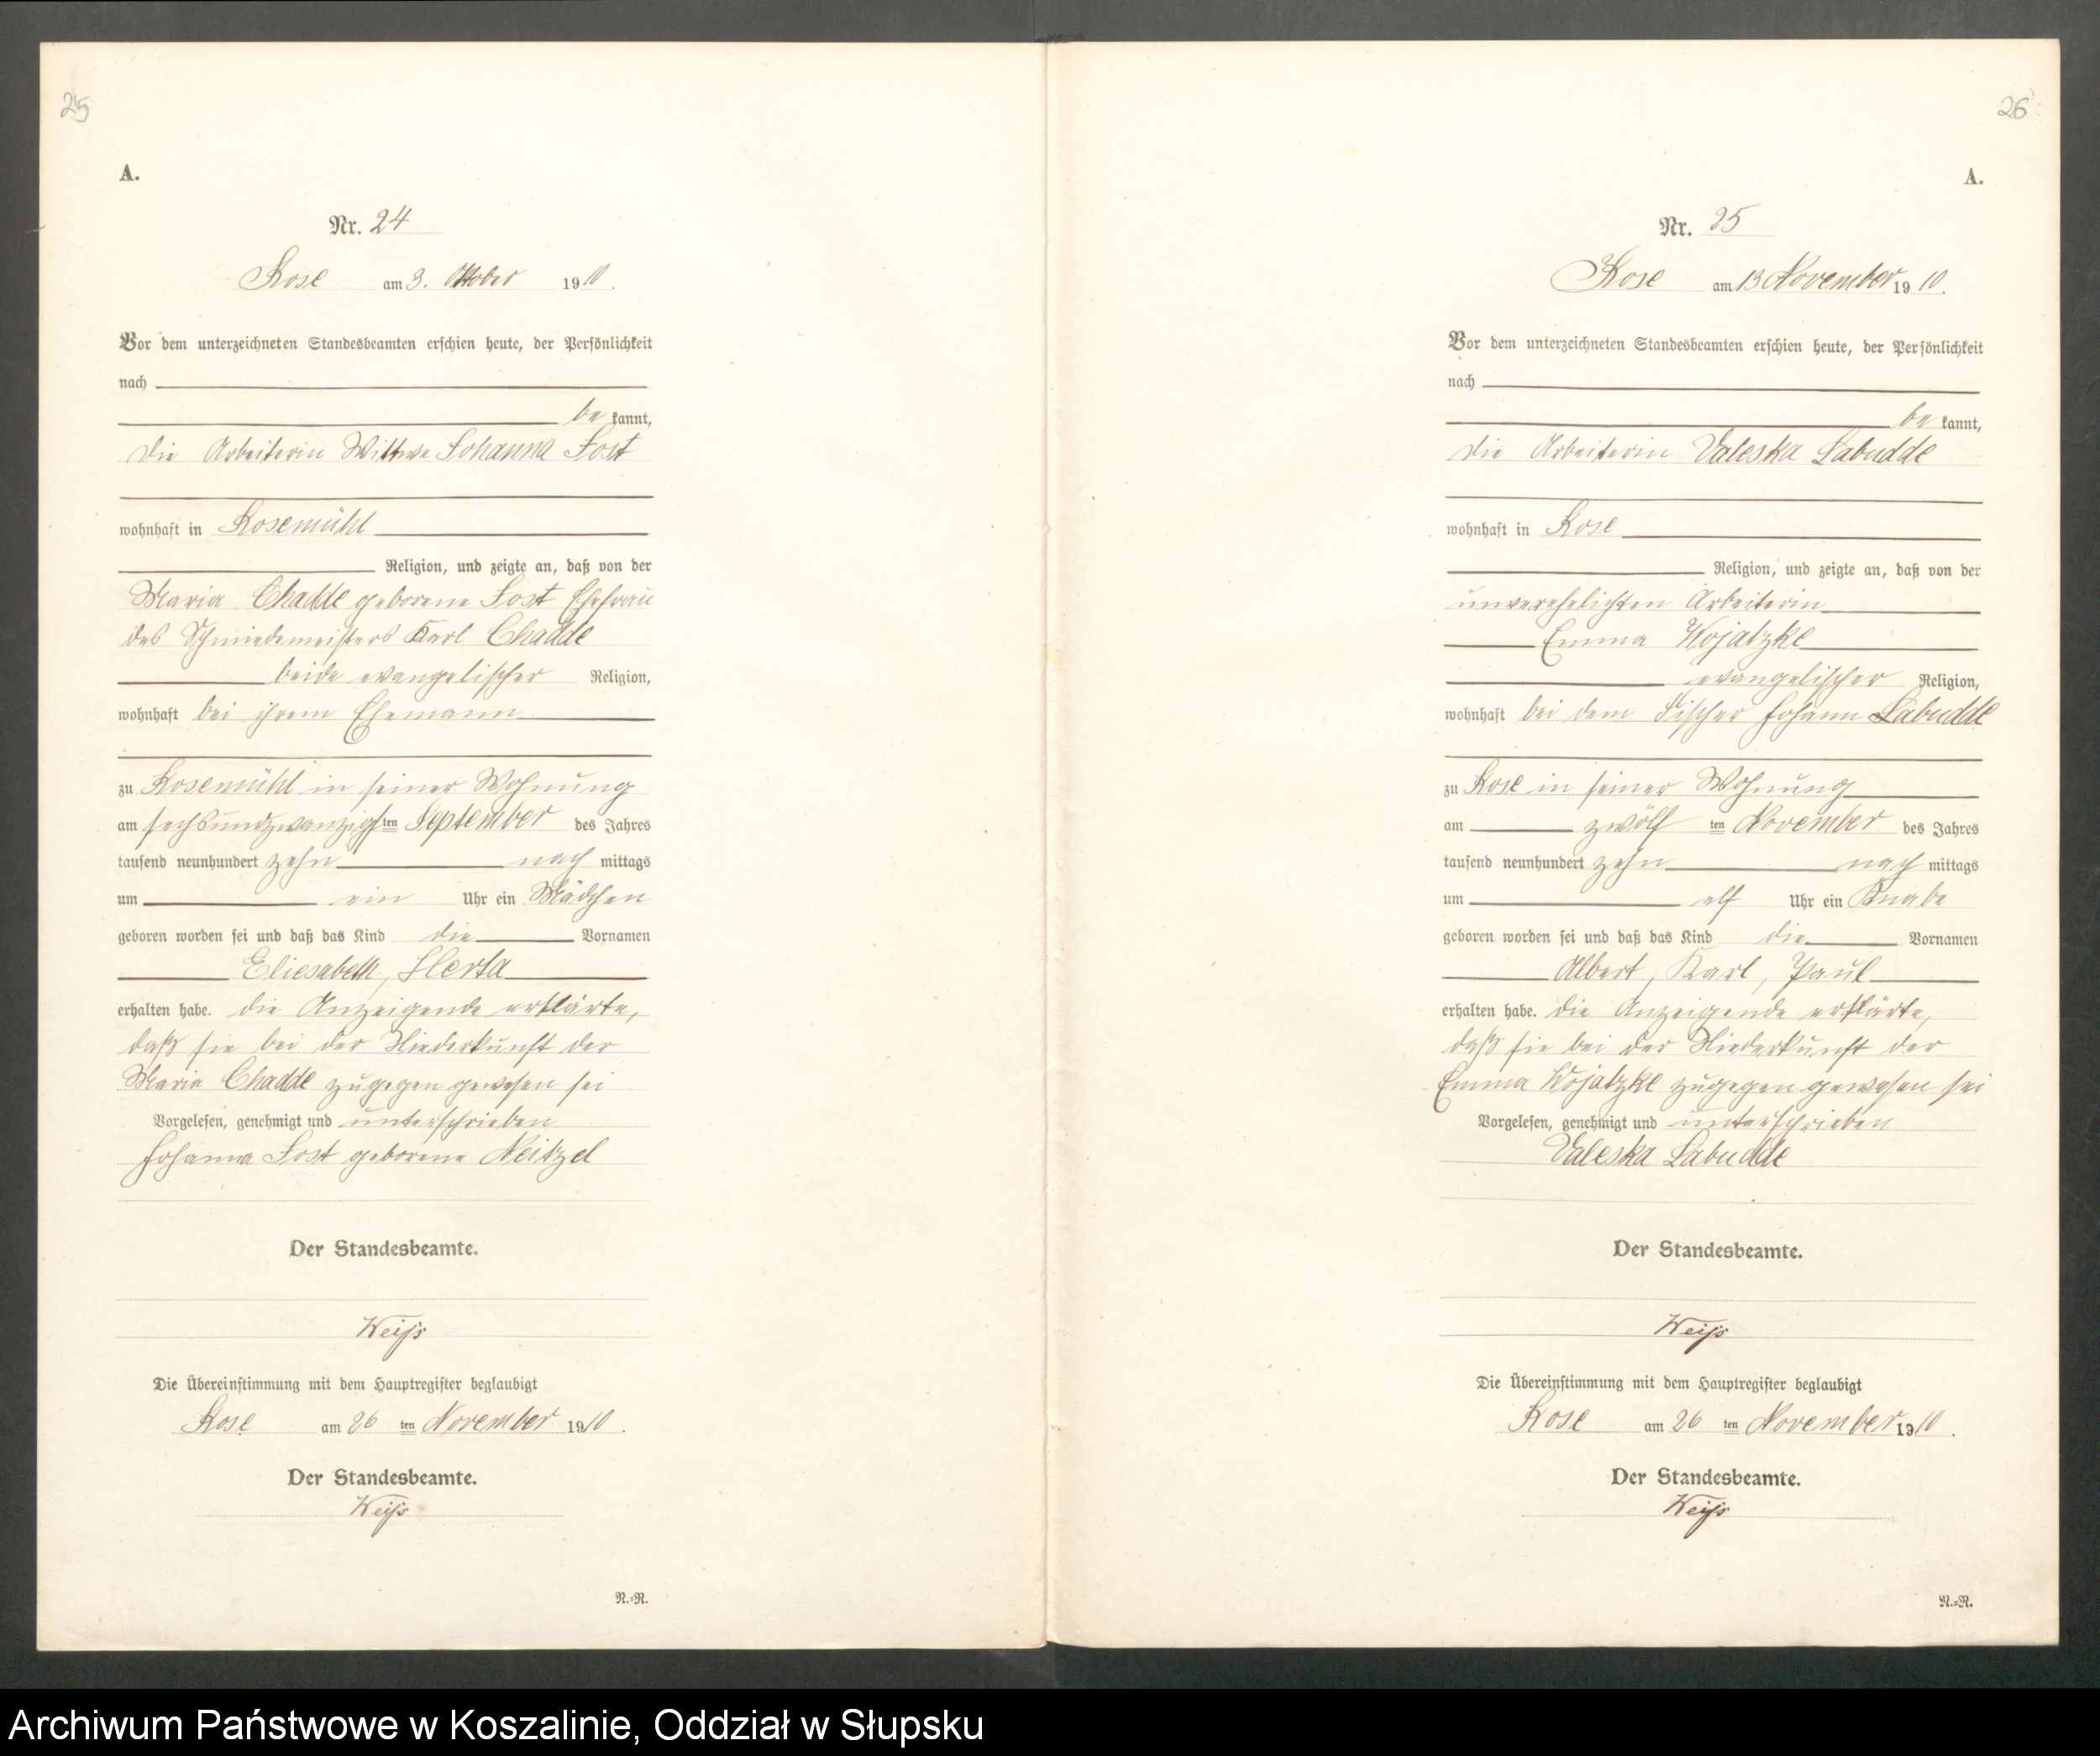 25
A.
Nr. 24
Rose am 3. Oktober 1910.
Vor dem unterzeichneten Standesbeamten erschien heute, der Persönlichkeit
nach
be kannt,
die Arbeiterin Wittwe Johanna Jost
wohnhaft in Rosemühl
Religion, und zeigte an, daß von der
Maria Chadde geborene Jost Ehefrau
des Schmiedemeisters Karl Chadde
beide evangelischer Religion,
wohnhaft bei ihrem Ehemann
zu Rosemühl in seiner Wohnung
am sechsundzwanzigsten September des Jahres
tausend neunhundert zehn nach mittags
um ein Uhr ein Mädchen
geboren worden sei und daß das Kind die Vornamen
Eliesabeth, Herta
erhalten habe. die Anzeigende erklärte,
daß sie bei der Niederkunft der
Maria Chadde zugegen gewesen sei
Vorgelesen, genehmigt und unterschrieben
Johanna Jost geborene Neitzel
Der Standesbeamte.
Weiß
Die Übereinstimmung mit dem Hauptregister beglaubigt
Rose am 26 ten November 1910.
Der Standesbeamte.
Weiß
N.=R.
26
A.
Nr. 25
Rose am 13 November 1910.
Vor dem unterzeichneten Standesbeamten erschien heute, der Persönlichkeit
nach
be kannt,
die Arbeiterin Valeska Labudde
wohnhaft in Rose
Religion, und zeigte an, daß von der
unverehelichten Arbeiterin
Emma Wojatzke
evangelischer Religion,
wohnhaft bei dem Fischer Johann Labudde
zu Rose in seiner Wohnung
am zwölf ten November des Jahres
tausend neunhundert zehn nach mittags
um elf Uhr ein Knabe
geboren worden sei und daß das Kind die Vornamen
Albert, Karl, Paul
erhalten habe. die Anzeigende erklärte,
daß sie bei der Niederkunft der
Emma Wojatzke zugegen gewesen sei
Vorgelesen, genehmigt und unterschrieben
Valeska Labudde
Der Standesbeamte.
Weiß
Die Übereinstimmung mit dem Hauptregister beglaubigt
Rose am 26 ten November 1910.
Der Standesbeamte.
Weiß
N.=R.
Archiwum Państwowe w Koszalinie, Oddział w Słupsku